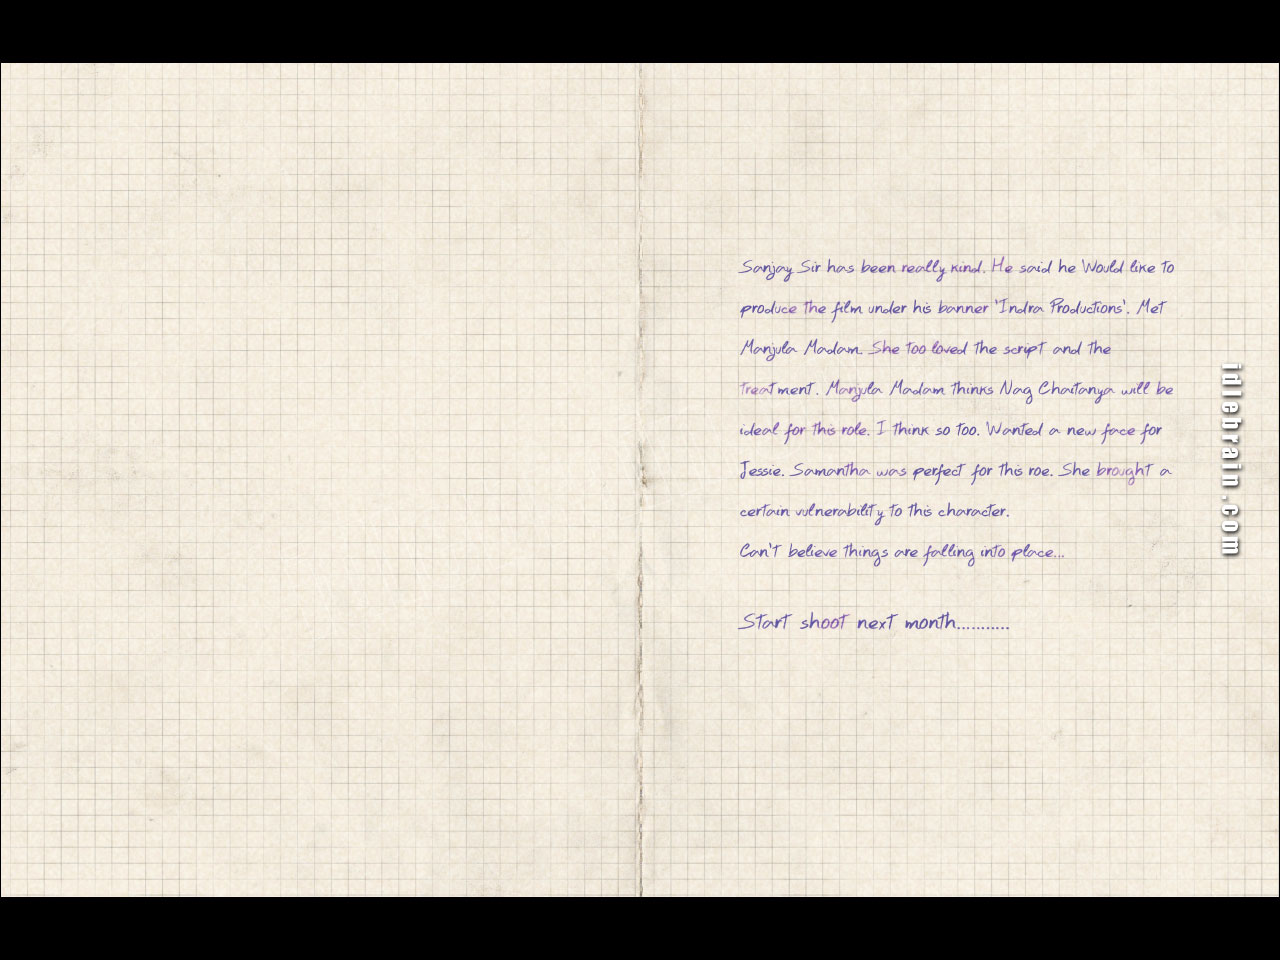 Sanjay Sir has been really kind. He said he Would like to
produce the film under his banner 'Indra Productions'. Met
Manjula Madam. She too loved the script and the
treatment. Manjula Madam thinks Nag Chaitanya will be
ideal for this role. I think so too. Wanted a new face for
Jessie. Samantha was perfect for this roe. She brought a
certain vulnerability to this character.
Can't believe things are falling into place...
Start shoot next month...........
idlebrain.com